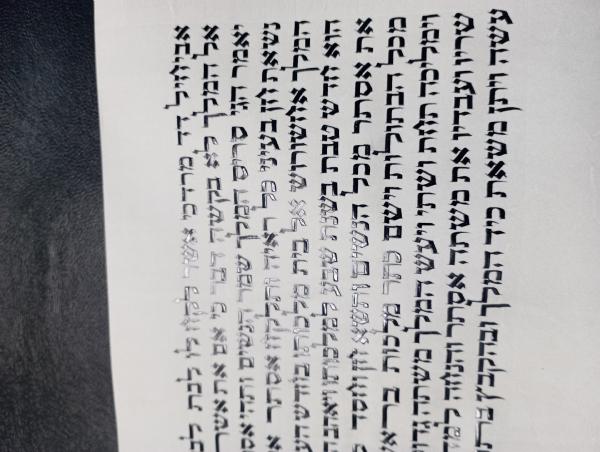 אביחיל דד מרדכי אשר לקח לו לבת
אל המלך לא בקשה דבר כי אם את אשר
יאמר הגי סריס המלך שמר הנשים ותהי
נשאת חן בעיני כל ראיה ותלקח אסתר
המלך אחשורוש אל בית מלכותו בחדש
הוא חדש טבת בשנת שבע למלכותו ויאהב
את אסתר מכל הנשים ותשא חן וחסד
מכל הבתולות וישם כתר מלכות
וימליכה תחת ושתי ויעש המלך משתה
שריו ועבדיו את משתה אסתר והנחה
עשה ויתן משאת כיד המלך ובהקבץ